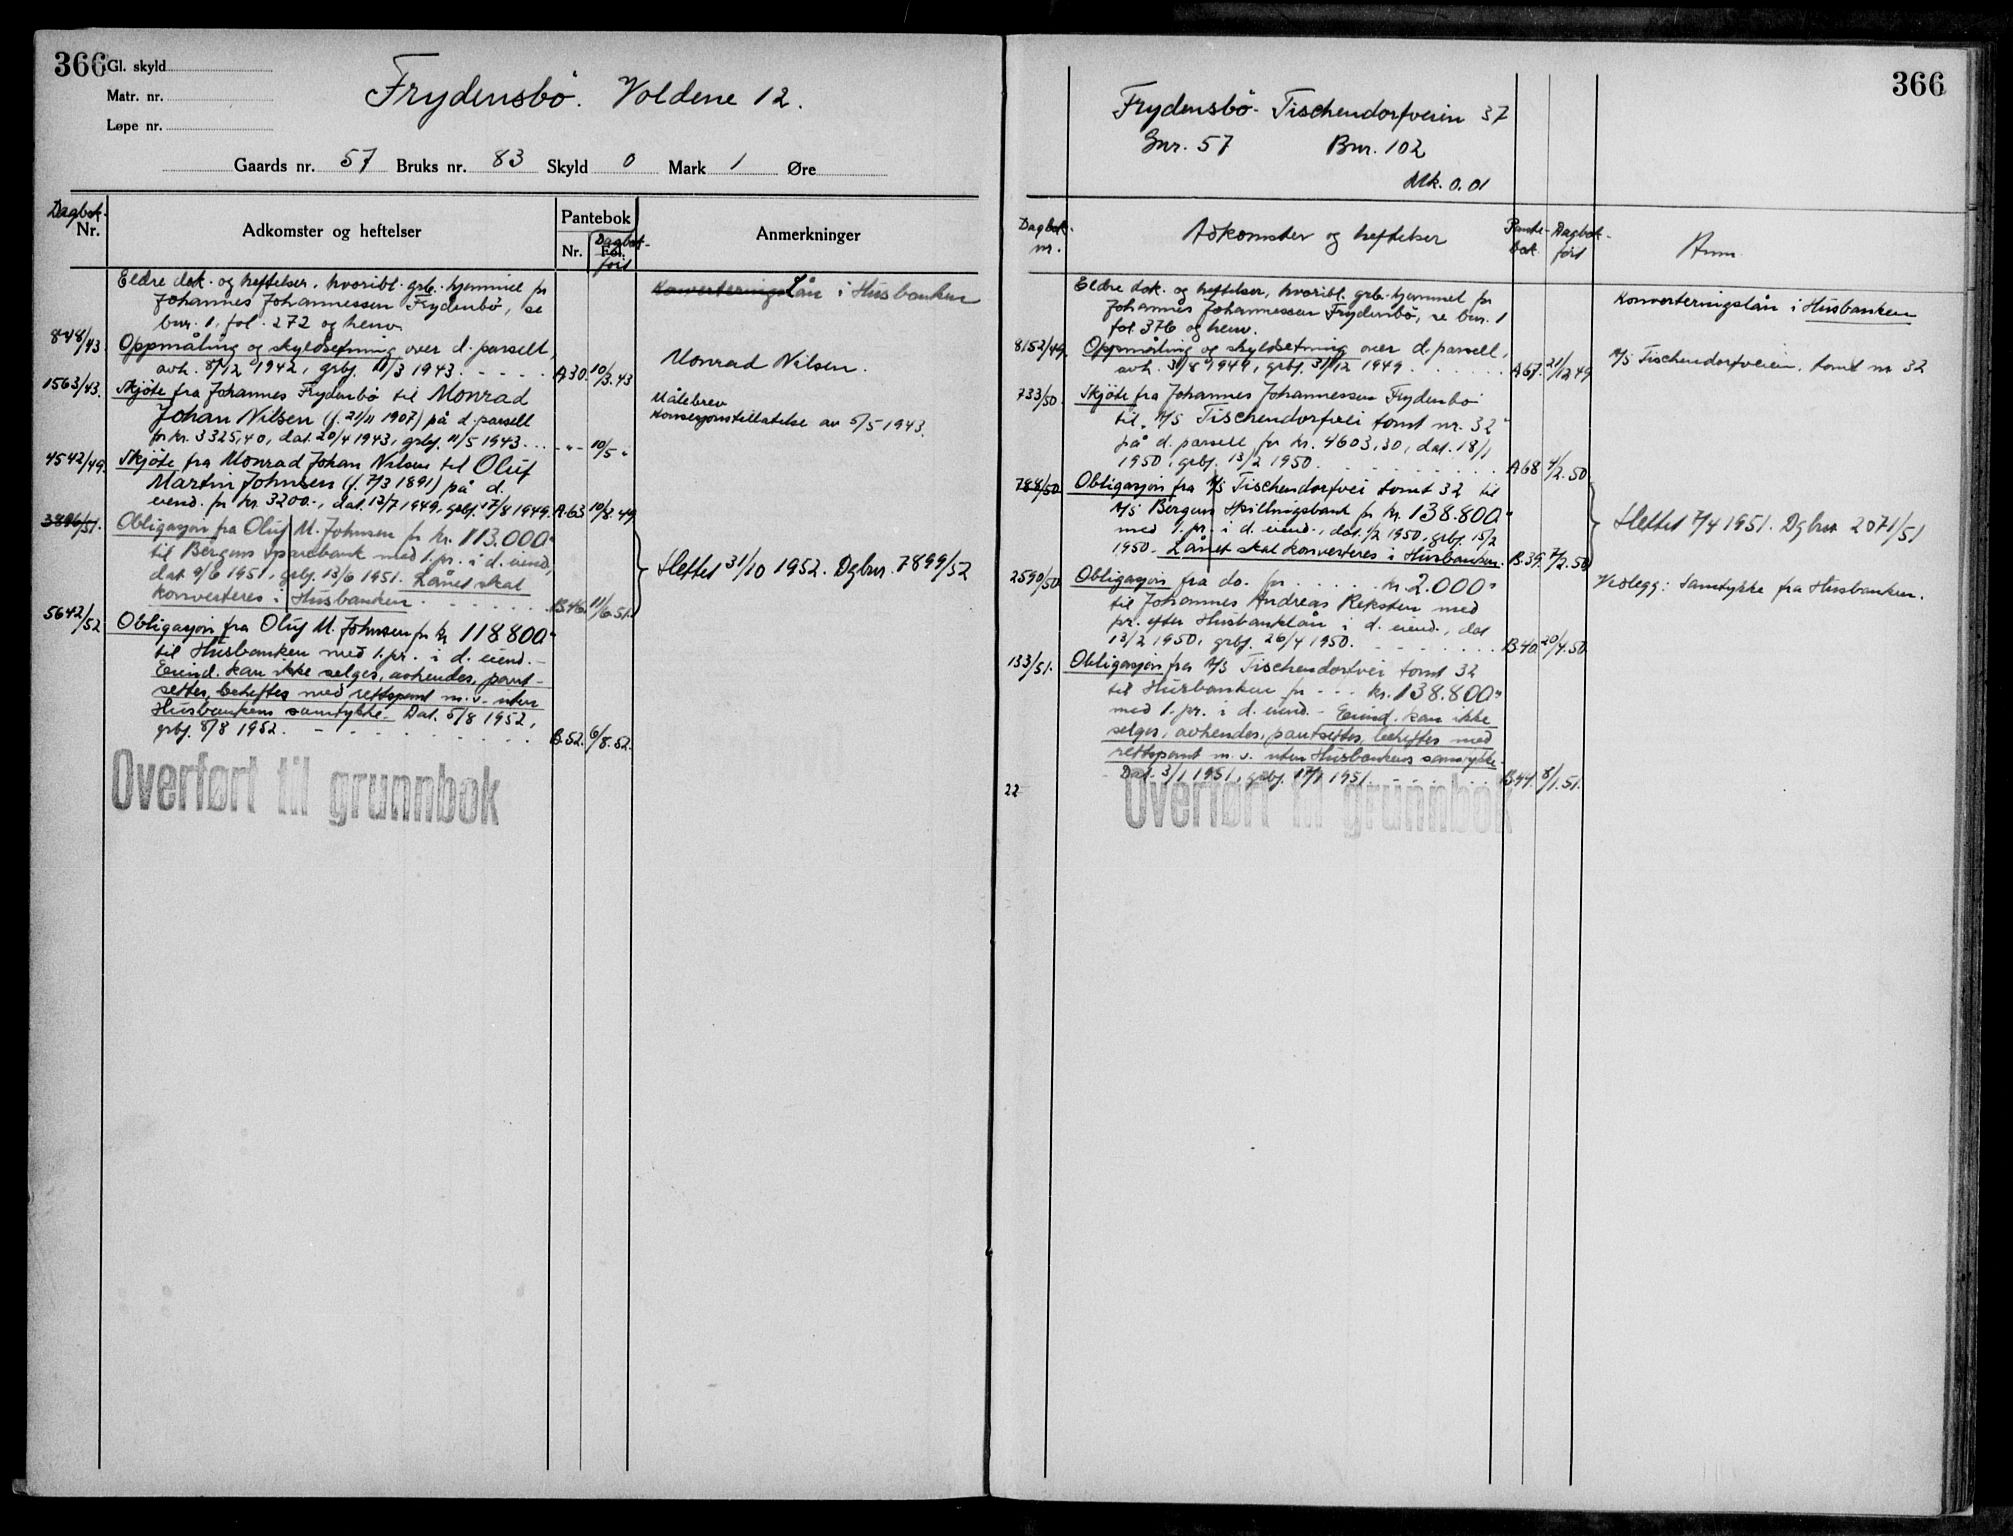 366
Gl. skyld
Matr. nr.
Løpe nr.
Frydensbö. Voldene 12.
Gaards nr. 57 Bruks nr. 83 Skyld 0 Mark 1 Øre
Dagbok.
Nr.
Adkomster og heftelser
Pantebok
Nr.
Fol.
Dagbok-
ført
Anmerkninger
Eldre dok. og heftelser, hvoribl. grb. hjemmel for
Johannes Johannessen Frydenbö, se
bnr. 1, fol. 272 og henv.
Konverterings Lån i Husbanken
848/43. Oppmåling og skyldsetning over d. parsell,
avh. 8/12 1942, grbj. 11/3 1943. - - - - A30. 10/3.43
Monrad Nilsen.
1563/43. Skjöte fra Johannes Frydenbö til Monrad
Johan Nilsen (f. 21/11 1907) på d. parsell
for kr. 3325,40, dat. 20/4 1943, grbj. 11/5 1943. . . -"- 10/5 "
Målebrev
Konsesjonstillatelse av 5/5 1943.
4542/49. Skjöte fra Monrad Johan Nilsen til Oluf
Martin Johnsen (f. 7/3 1891) på d.
eiend. for kr. 3200.-, dat. 12/7 1949, grbj. 17/8 1949. A.63 10/8.49
3896/51. Obligasjon fra Oluf M. Johnsen for kr. 113.000"
til Bergens Sparebank med 1. pr. i d. eiend,
dat 9/6 1951, grbj. 13/6 1951. Lånet skal
konverteres i Husbanken . . . . . . B.46. 11/6.51.
Slettet 31/10 1952. Dgbnr. 7899/52
5642/52 Obligasjon fra Oluf M. Johnsen for kr 118.800"
til Husbanken med 1. pr. i d. eiend. -
Eiend. kan ikke selges, avhendes, pant-
settes, beheftes med rettspant m. v. uten
Husbankens samtykke. Dat. 5/8 1952,
grbj. 8/8 1952. - - - - - - - B.52. 6/8.52.
Overført til grunnbok
366
Frydensbö - Tischendorfveien 37
Gnr. 57 Bnr. 102
Mk. 0.01
Dagbok-
nr.
Adkomster og heftelser
Pante-
bok
Dagbok-
ført
Anm.
Eldre dok. og heftelser, hvoribl. grb. hjemmel for
Johannes Johannessen Frydenbö, se bnr. 1
fol 376 og henv.
Konverteringslån i Husbanken
8152/49. Oppmåling og skyldsetning over d. parsell,
avh. 31/8 1949, grbj. 31/12 1949 . . . . . . A67. 21/12 49
A/S Tischendorfveien, tomt nr 32
733/50. Skjöte fra Johannes Johannessen Frydenbö
til "A/S Tischendorfvei tomt nr. 32"
på d. parsell for kr. 4603,30, dat. 18/1
1950, grbj. 13/2 1950. . . . . . . . . A68 4/2.50
788/50 Obligasjon fra A/S Tischendorfvei tomt 32 til
A/S Bergens Skillingsbank for kr. 138.800"
med 1. pr. i d. eiend., dat. 1/2 1950, grbj. 15/2
1950. Lånet skal konverteres i Husbanken. B.39. 7/2.50
Slettet 7/4 1951. Dgbnr 2071/51
2590/50. Obligasjon fra do. for . . . . . kr. 2.000"
til Johannes Andreas Reksten med
pr. efter Husbanklån i d. eiend., dat
13/2 1950, grbj. 26/4 1950. - - - - - - B.40. 20/4.50.
Vedlegg: Samtykke fra Husbanken.
133/51. Obligasjon fra A/S Tischendorfvei tomt 32
til Husbanken for - - - kr. 138.800"
med 1. pr. i d. eiend. - Eiend. kan ikke
selges, avhendes, pantsettes, beheftes med
rettspant m. v. uten Husbankens samtykke.
Dat. 3/1 1951, grbj. 17/1 1951. - - - - - B44. 8/1.51.
22
Overført til grunnbok